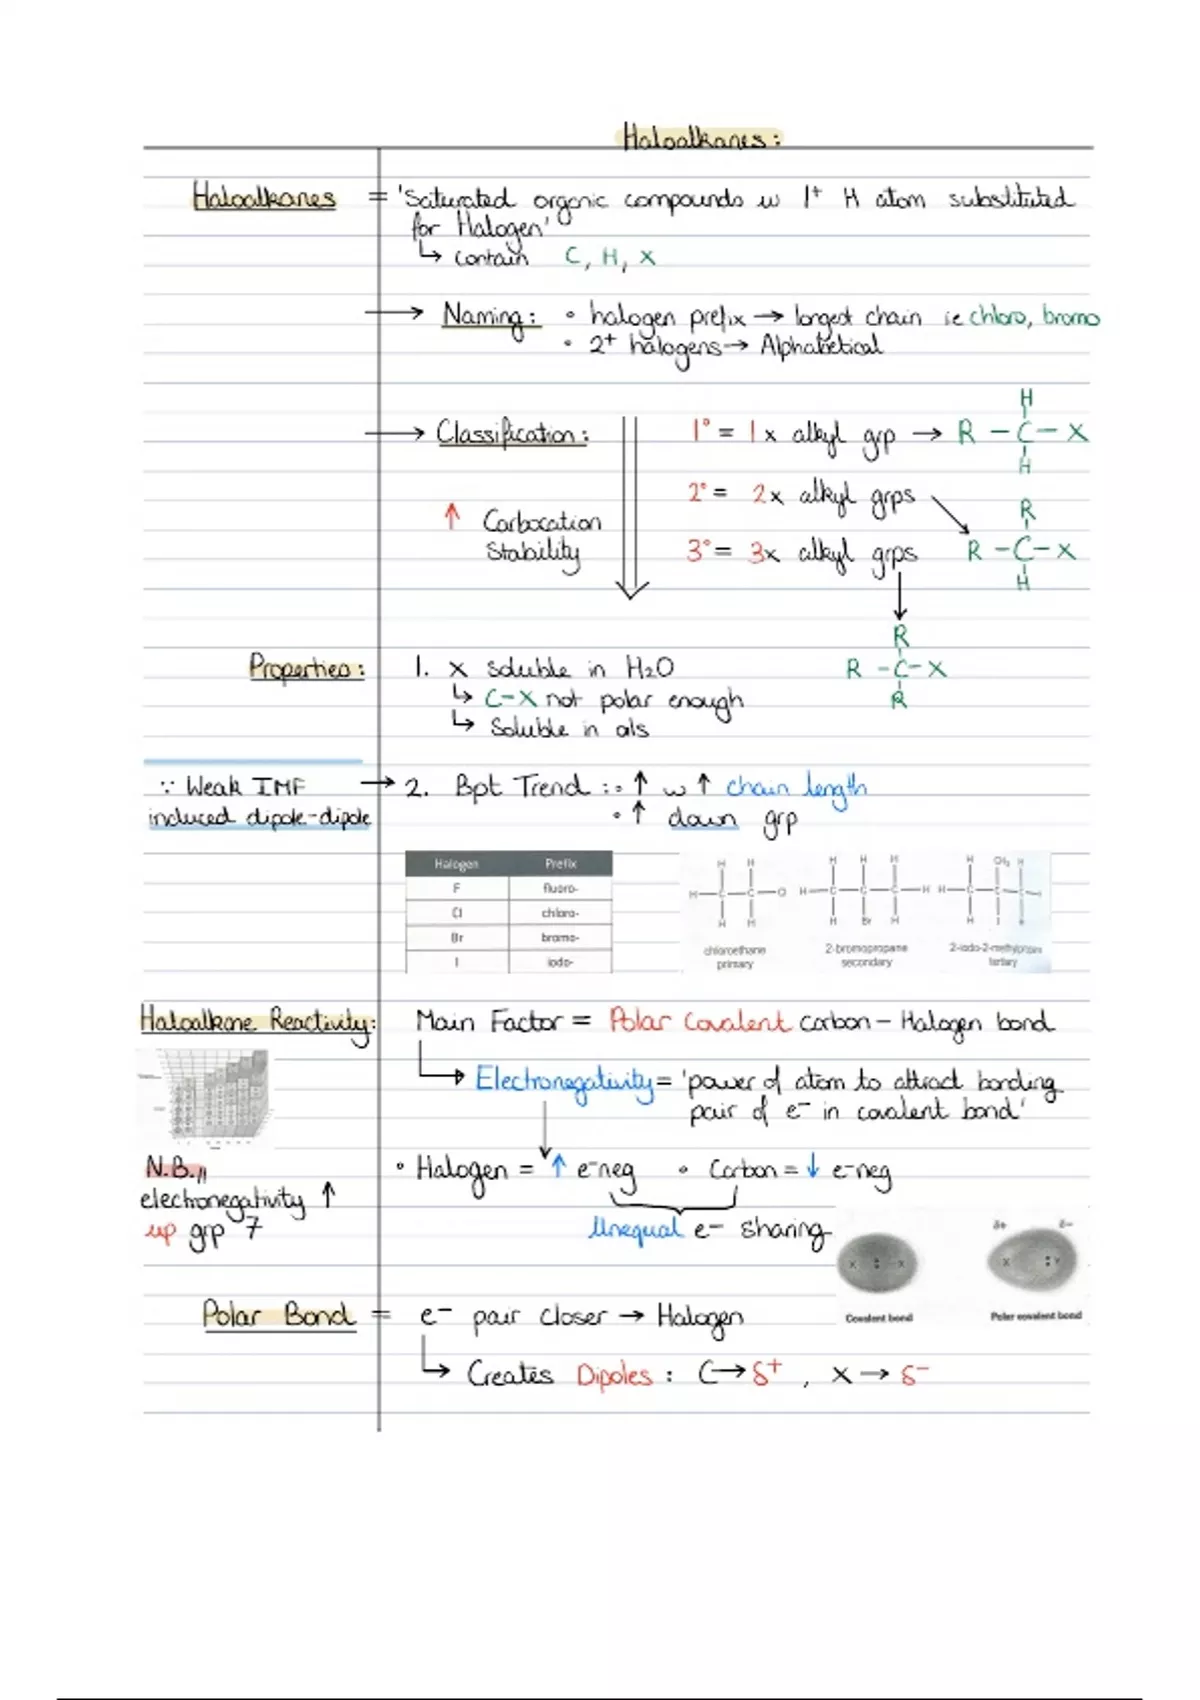 Haloalkanes:
Haloalkanes = 'Saturated organic compounds w 1+ H atom substituted
for Halogen'
↳ contain C, H, X
→ Naming: • halogen prefix → longest chain ie chloro, bromo
• 2+ halogens → Alphabetical
→ Classification: 1° = 1 x alkyl grp → R - C - X
H
H
2° = 2x alkyl grps
↑ Carbocation
Stability
3° = 3x alkyl grps
R
R - C - X
H
R
R - C - X
R
Properties: 1. x soluble in H2O
↳ C-X not polar enough
↳ Soluble in als
∵ Weak IMF → 2. Bpt Trend :• ↑ w ↑ chain length
induced dipole-dipole • ↑ down grp
Halogen Prefix
F fluoro-
Cl chloro-
Br bromo-
I iodo-
chloroethane
primary
2-bromopropane
secondary
tertiary
Haloalkane Reactivity: Main Factor = Polar Covalent carbon - Halogen bond
↳ Electronegativity = 'power of atom to attract bonding
pair of e- in covalent bond'
N.B.
electronegativity ↑
up grp 7
• Halogen = ↑ e-neg • Carbon = ↓ e-neg
Unequal e- sharing
δ+ δ-
X : X
X : Y
Covalent bond
Polar covalent bond
Polar Bond = e- pair closer → Halogen
↳ Creates Dipoles : C → δ+ , X → δ-